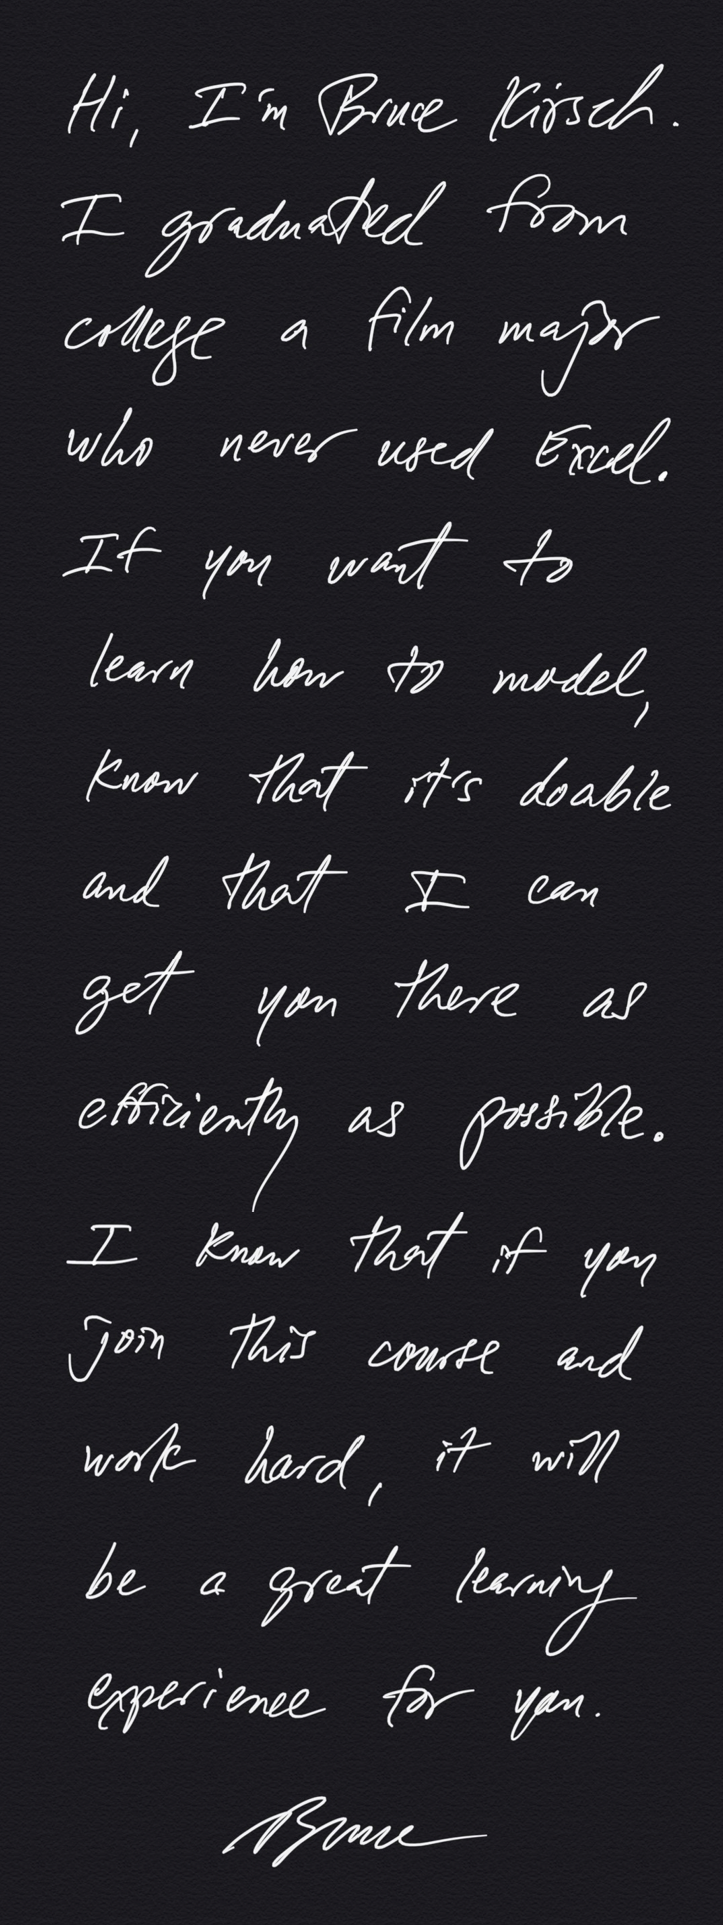 Hi, I'm Bruce Kirsch.
I graduated from
college a film major
who never used Excel.
If you want to
learn how to model,
know that it's doable
and that I can
get you there as
efficiently as possible.
I know that if you
join this course and
work hard, it will
be a great learning
experience for you.
Bruce